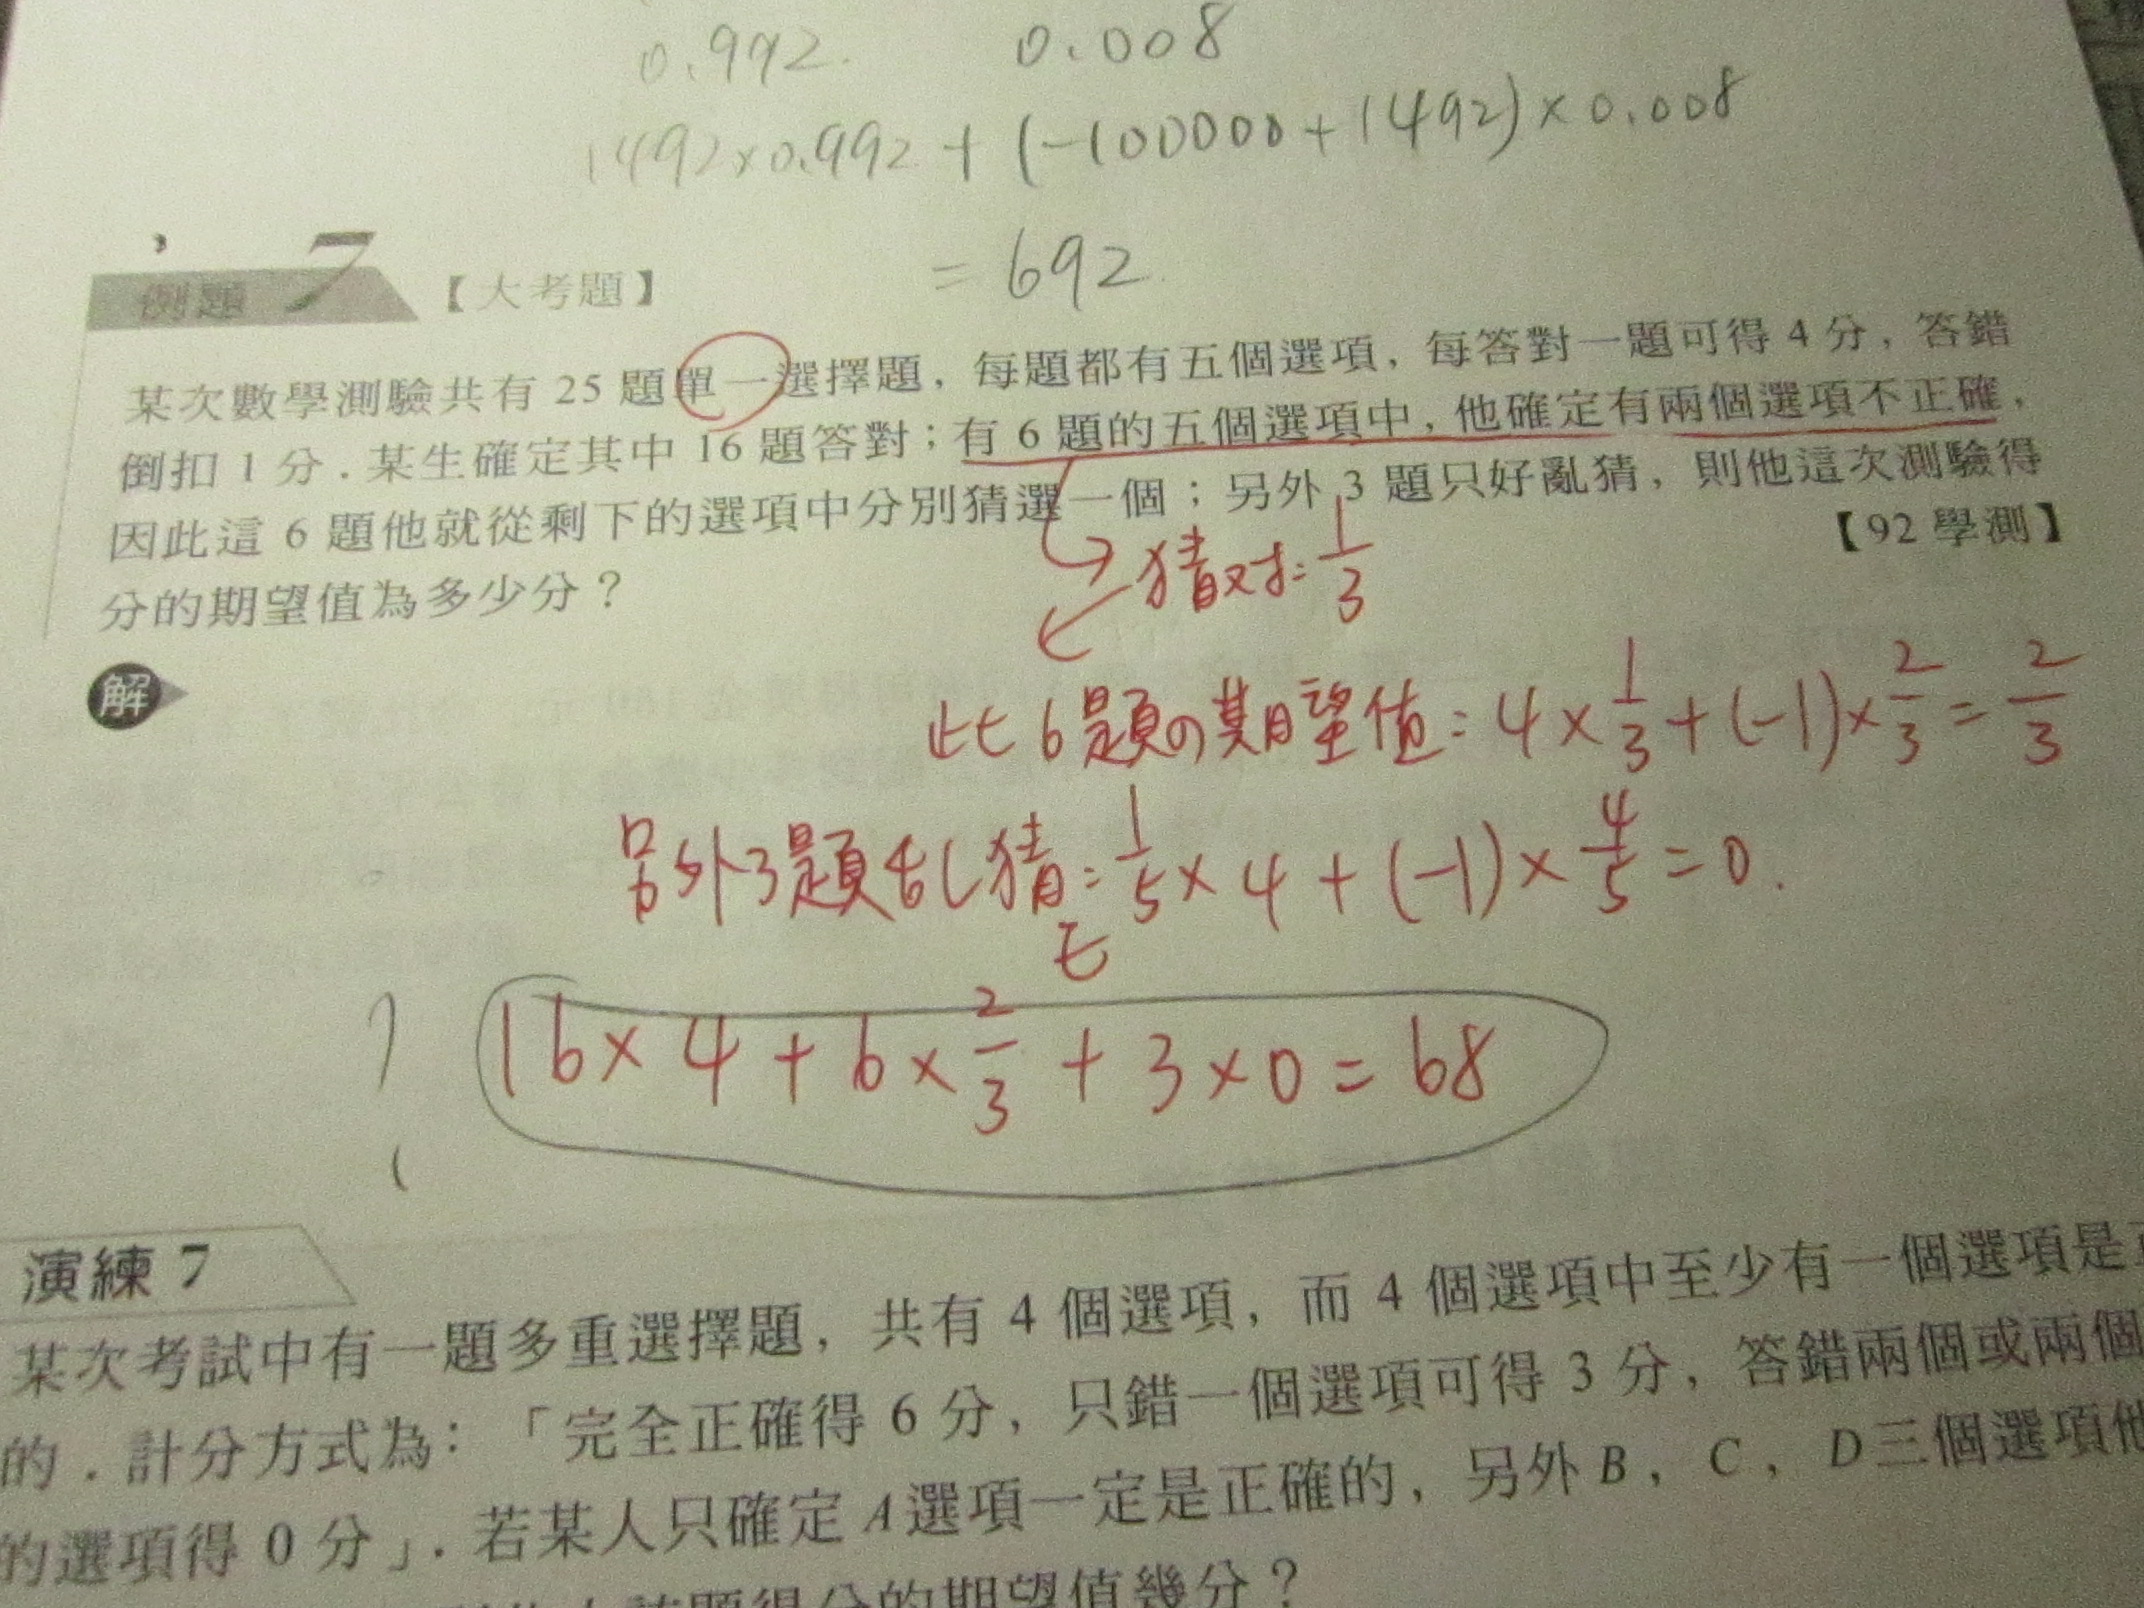 0.992 0.008
1492×0.992+(-100000+1492)×0.008
=692
例題 7 【大考題】
某次數學測驗共有 25 題單一選擇題，每題都有五個選項，每答對一題可得 4 分，答錯
倒扣 1 分．某生確定其中 16 題答對；有 6 題的五個選項中，他確定有兩個選項不正確，
因此這 6 題他就從剩下的選項中分別猜選一個；另外 3 題只好亂猜，則他這次測驗得
分的期望值為多少分？
【92 學測】
猜对=1/3
解
此6題の期望值=4×1/3+(-1)×2/3=2/3
另外3題乱猜=1/5×4+(-1)×4/5=0.
E
16×4+6×2/3+3×0=68
演練 7
某次考試中有一題多重選擇題，共有 4 個選項，而 4 個選項中至少有一個選項是
的．計分方式為：「完全正確得 6 分，只錯一個選項可得 3 分，答錯兩個或兩個
的選項得 0 分」．若某人只確定 A 選項一定是正確的，另外 B，C，D 三個選項他
該題得分的期望值幾分？